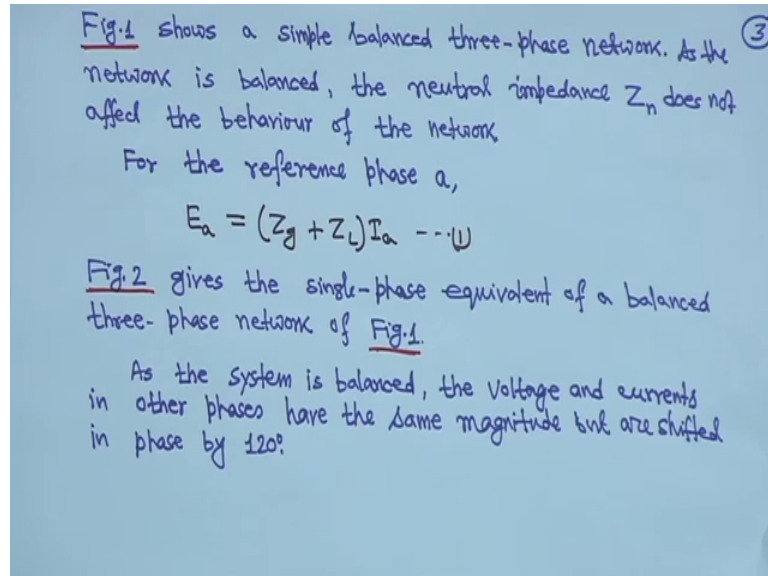 Fig.1 shows a simple balanced three-phase network. As the
③
network is balanced, the neutral impedance Zn does not
affect the behaviour of the network
For the reference phase a,
Ea = (Zg + ZL) Ia ---(1)
Fig.2 gives the single-phase equivalent of a balanced
three-phase network of Fig.1.
As the system is balanced, the voltage and currents
in other phases have the same magnitude but are shifted
in phase by 120°.